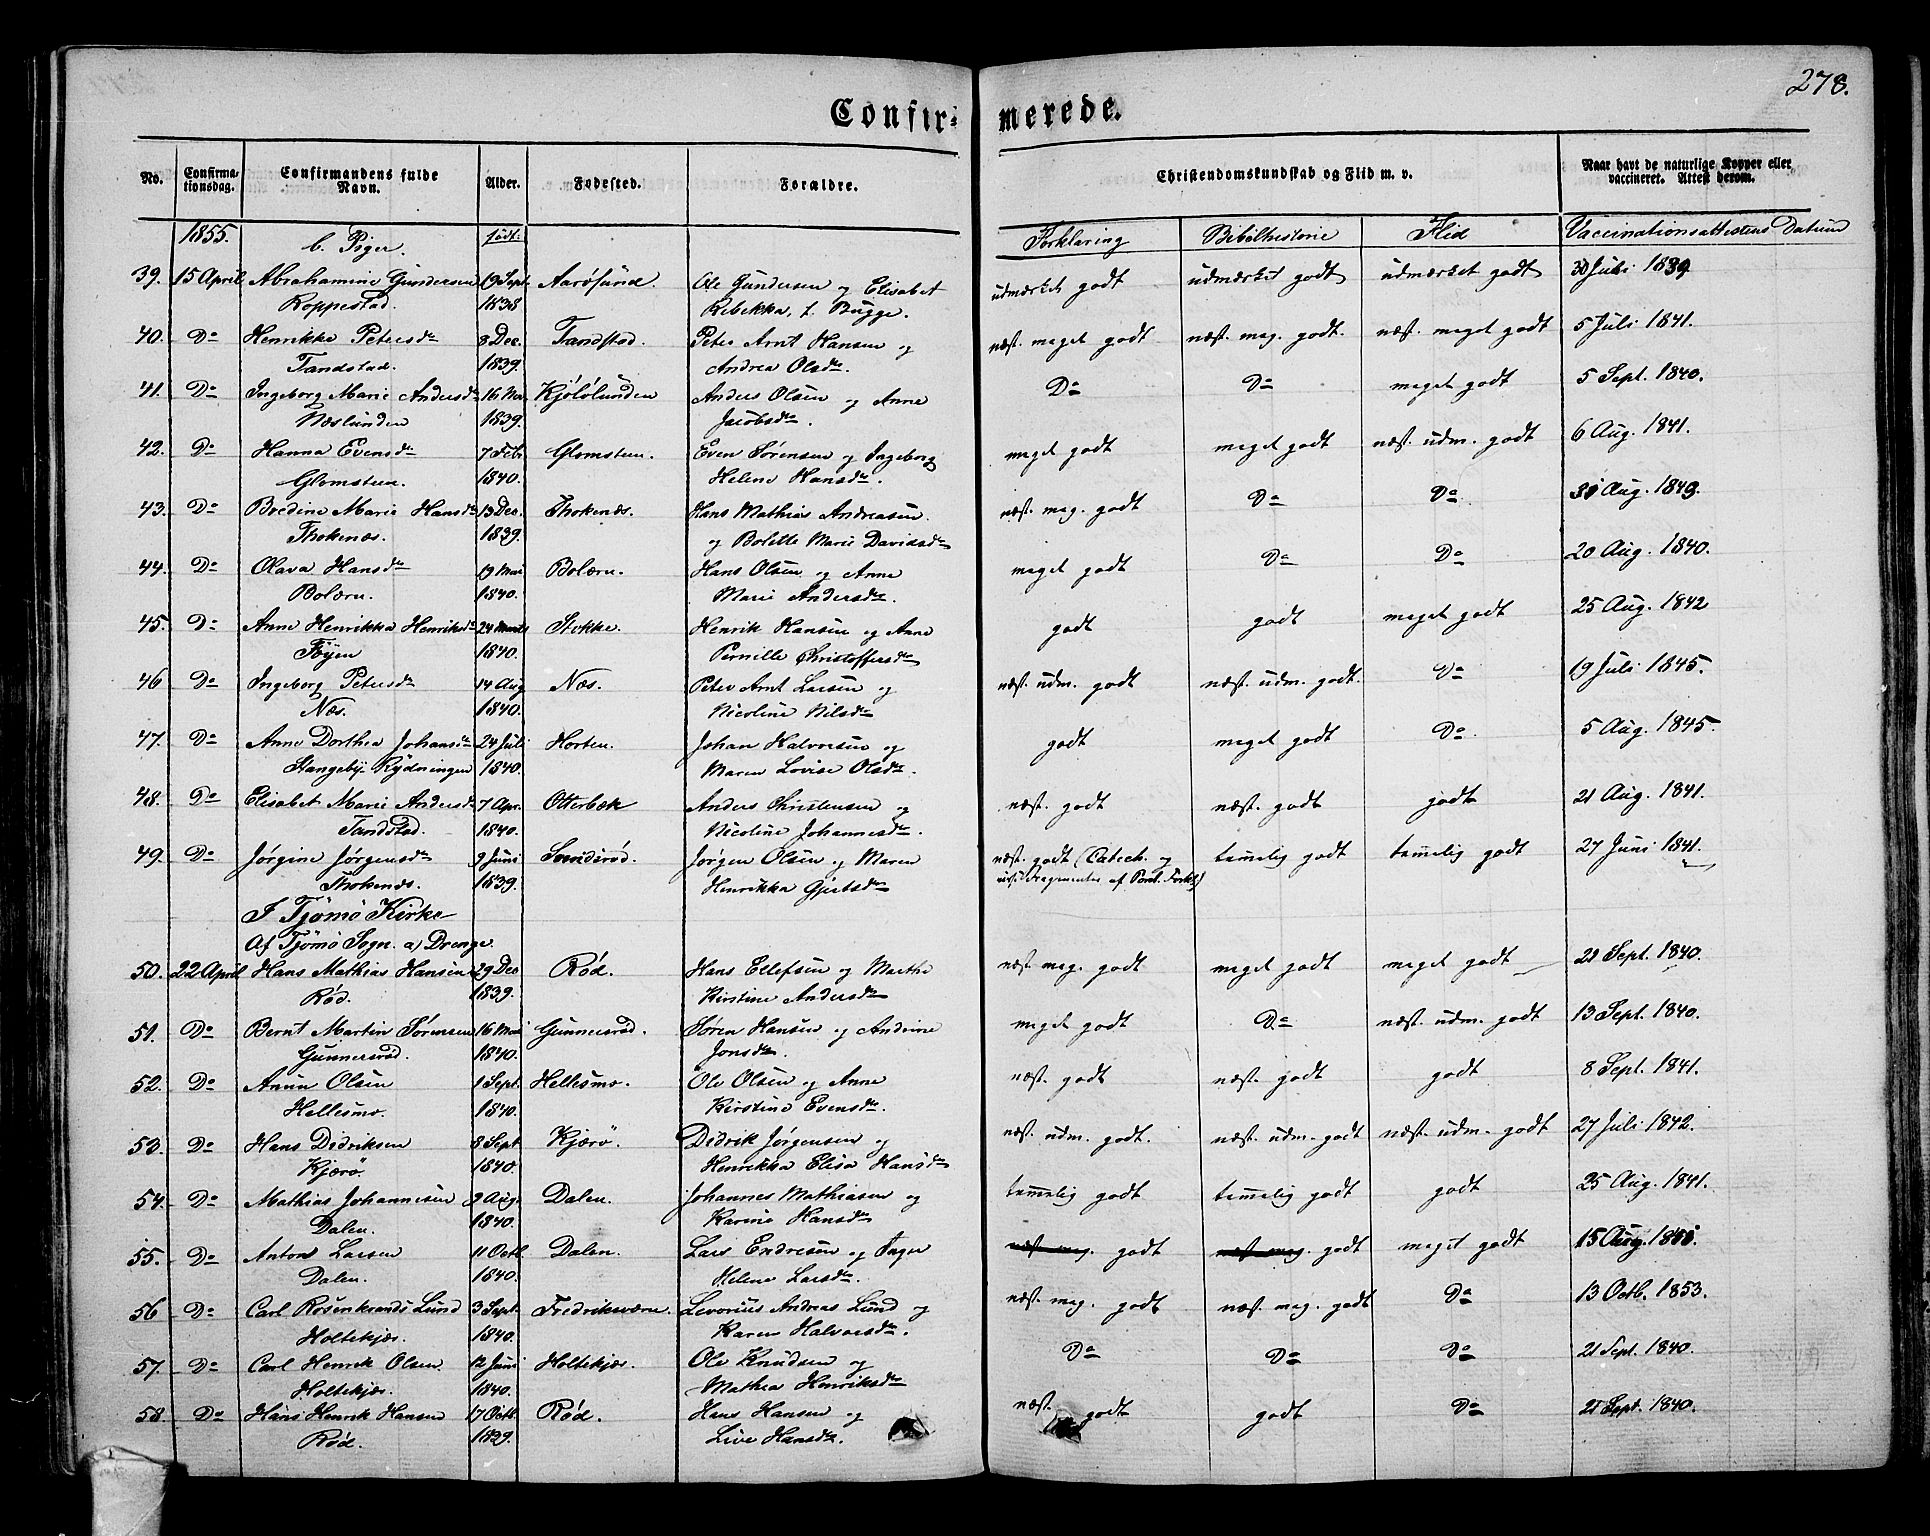 278.
Confir- merede.
No. Confirma- tionsdag. Confirmandens fulde Navn. Alder. Fødested. Forældre. Christendomskundskab og Flid m. v. Naar havt de naturlige Kopper eller vaccineret. Attest derom.
1855. b. Piger. født: Forklaring Bibelhistorie Flid Vaccinationsattestens Datum
39. 15 April Abrahamine Gundersen 19 Sept. Aarøsund. Ole Gundersen og Elisabet udmærket godt udmærket godt udmærket godt 30 Juli 1839
Roppestad. 1838 Rebekka, f. Bugge.
40. Do Henrikke Petersdr 8 Dec. Tandstad. Peter Arnt Hansen og næst. meget godt næst. meg. godt. næst. meget godt 5 Juli 1841.
Tandstad. 1839. Andrea Olsdr.
41. Do Ingeborg Marie Andersdr 16 Nov. Kjølølunden Anders Olsen og Anne Do Do meget godt 5 Sept. 1840.
Næslunden 1839. Jacobsdr.
42. Do Hanna Evensdr 7 Feb. Glomsten. Even Sørensen og Ingeborg meget godt meget godt næst. udm. godt 6 Aug. 1841.
Glomsten. 1840. Helene Hansdr.
43. Do Bredine Marie Hansdr 13 Dec. Thokenæs. Hans Mathias Andreasen næst. meg. godt Do Do 31 Aug. 1849.
Thokenæs. 1839. og Bolette Marie Davidsdr
44. Do Olava Hansdr 19 Mai Bolærn. Hans Olsen og Anne meget godt Do Do 20 Aug. 1840.
Bolærn. 1840. Marie Andersdr.
45. Do Anne Henrikka Henriksdr 24 Marts Stokke. Henrik Hansen og Anne godt godt meget godt 25 Aug. 1842
Føyen 1840. Pernille Christoffersdr
46 Do Ingeborg Petersdr 14 Aug Næs. Peter Arnt Larsen og næst. udm. godt næst. udm. godt. Do 19 Juli 1845.
Næs. 1840. Nicoline Nilsdr
47. Do Anne Dorthea Johansdr 24 Juli Horten. Johan Halvorsen og godt meget godt Do 5 Aug. 1845.
Stangeby Rydningen 1840. Maren Lovise Olsdr.
48. Do Elisabet Marie Andersdr 7 Apr. Otterbæk Anders Christensen og næst. godt næst. godt godt 21 Aug. 1841.
Tandstad. 1840. Nicoline Johannesdr
49. Do Jørgine Jørgensdr 9 Juni Sundsrød. Jørgen Olsen og Maren næst. godt (Catech. og temmelig godt temmelig godt 27 Juni 1841.
Thokenæs. 1839. Henrikka Gjertsdr Fragmenter af Pont. Forkl.)
I Tjømø Kirke
Af Tjømø Sogn. a) Drenge.
50. 22 April Hans Mathias Hansen 29 Dec Rød. Hans Ellefsen og Marthe næst meg. godt meget godt meget godt 21 Sept. 1840.
Rød. 1839. Kirstine Andersdr
51. Do Bernt Martin Sørensen 16 Mai Gunnersrød. Søren Hansen og Andrine meget godt Do næst. udm. godt 13 Sept. 1840.
Gunnersrød. 1840. Jonsdr.
52. Do Anun Olsen 1 Sept. Hellesmo. Ole Olsen og Anne næst. godt næst. godt godt 8 Sept. 1841.
Hellesmo. 1840. Kirstine Evensdr.
53. Do Hans Didriksen 8 Sept Kjærø. Didrik Jørgensen og næst. udm. godt. næst. udm. godt næst. udm. godt 27 Juli 1842.
Kjærø. 1840. Henrikka Elisa Hansdr
54. Do Mathias Johannesen 9 Aug. Dalen. Johannes Mathiasen og temmelig godt temmelig godt godt 25 Aug. 1841.
Dalen. 1840. Karine Hansdr
55. Do Anton Larsen 11 Octb. Dalen. Lars Endresen og Inger næst meg. godt næst meg. godt meget godt 15 Aug.
Dalen. 1840. Helene Larsdr.
56 Do Carl Rosenkrands Lund 3 Sept. Fredriksværn. Levorius Andreas Lund og næst meg. godt næst. meg. godt Do 13 Octb. 1853.
Holtekjær. 1840. Karen Halvorsdr.
57. Do Carl Henrik Olsen 12 Juni Holtekjær. Ole Knudsen og Do Do Do 21 Sept. 1840.
Holtekjær. 1840. Mathea Henriksdr
58 Do Hans Henrik Hansen 17 Octb. Rød. Hans Hansen og næst. godt godt Do 21 Sept. 1840.
Rød. 1839. Live Hansdr.